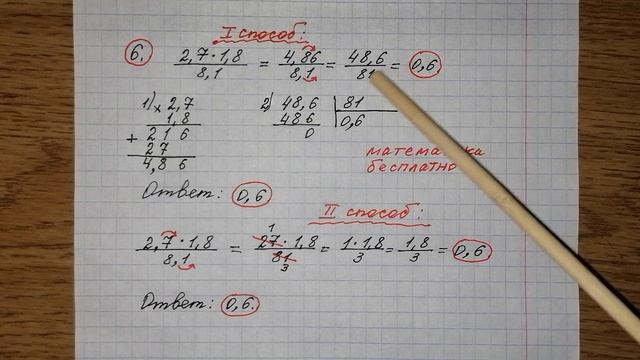 I способ:
6. 2,7·1,8/8,1 = 4,86/8,1 = 48,6/81 = 0,6.
1) × 2,7
1,8
+ 216
27
4,86
2) 48,6 | 81
486 | 0,6
0
математика
бесплатно
Ответ: 0,6
II способ:
2,7·1,8/8,1 = 27·1,8/81 = 1·1,8/3 = 1,8/3 = 0,6
1
3
Ответ: 0,6.